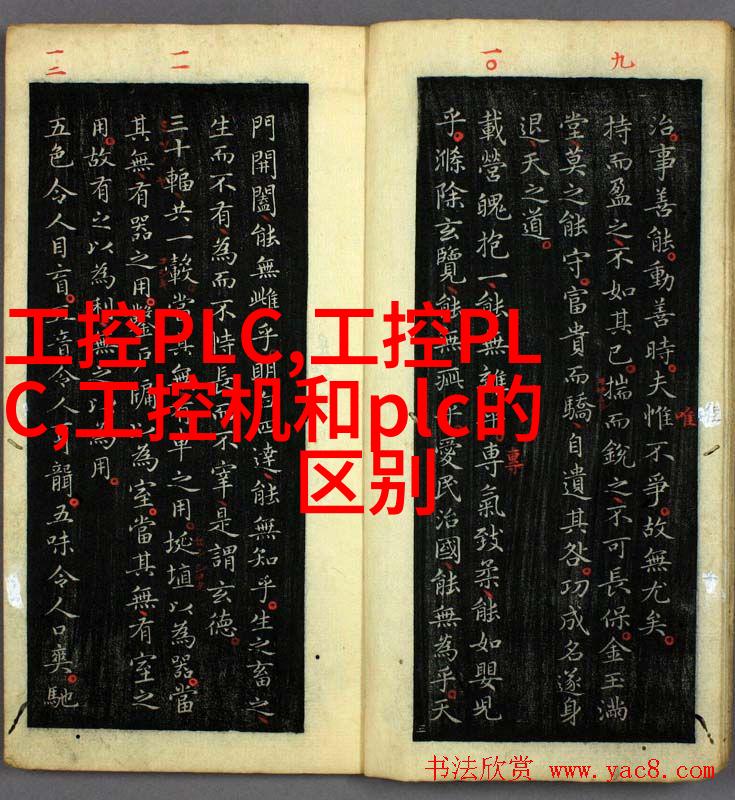 工控PLC,工控PL
C,工控机和plc的
区别
九
一〇
一一
一二
治事善能動善時夫惟不爭故無尤矣
唯
持而盈之不如其已揣而銳之不可長保金玉滿
堂莫之能守富貴而驕自遺其咎功成名遂身
退天之道
載營魄抱一能無專氣致柔能如嬰兒
專
乎滌除玄覽能無疵乎愛民治國能無為乎天
門開闔能無雌乎達能無知乎生之畜之
生而不有為而不恃長而不宰是謂玄德
三十輻共一轂當其無之用埏埴以為器當
其無有器之用鑿牖以為室當其無有室之
用故有之以為利無之以為用
五色令人目盲五音令人耳聾五味令人口爽馳
书法欣赏 www.yac8.com